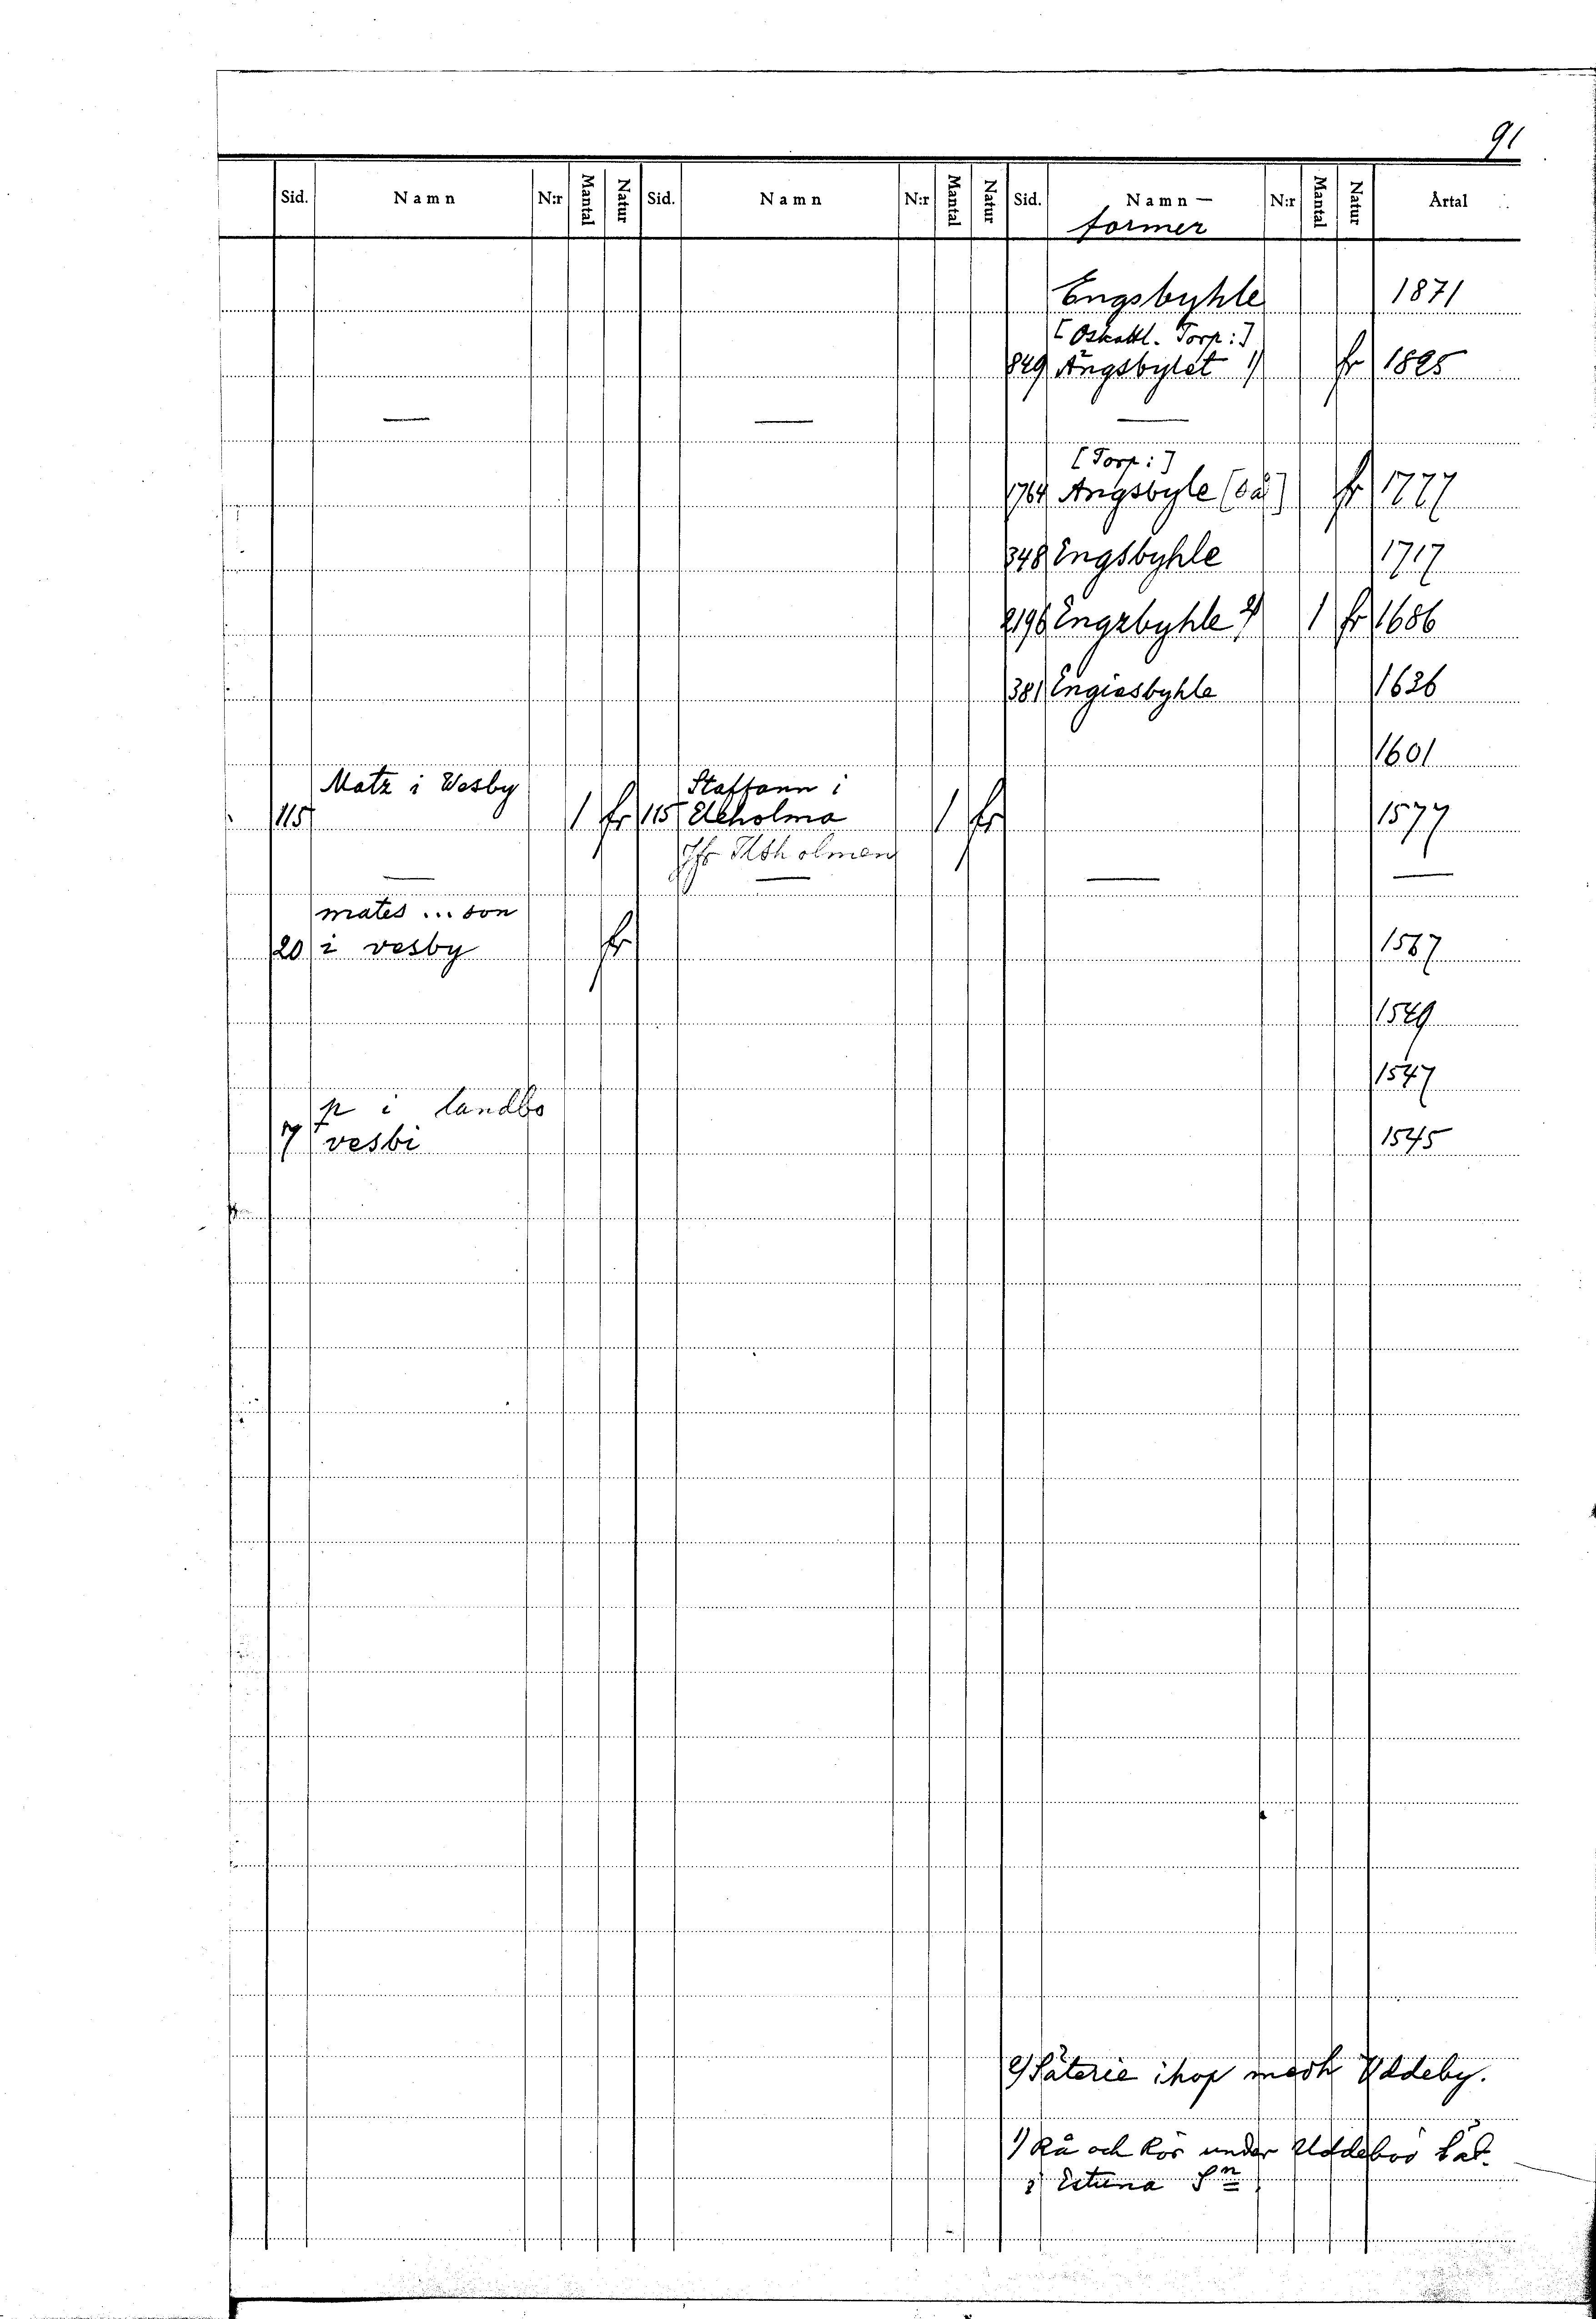 91
Sid. Namn N:r Mantal Natur Sid. Namn N:r Mantal Natur Sid. Namn — N:r Mantal Natur Årtal
former
Engsbyhle 1871
[Oskattl. Torp:]
849 Ängsbylet 1) fr 1825
— — —
[Torp:]
1764 Angsbyle [så] fr 1777
348 Engsbyhle 1717
2196 Engzbyhle 2) 1 fr 1686
381 Engiesbyhle 1636
1601
Matz i Wesby Staffann i
115 1 fr 115 Elcholma 1 fr 1577
Jfr
— — — —
mates ... son
20 i vesby fr 1567
1549
1547
p i landbo
7 vesbi 1545
2) Säterie ihop medh Uddeby.
1) Rå och Rör under Uddeboö Sät.
i Estuna Sn